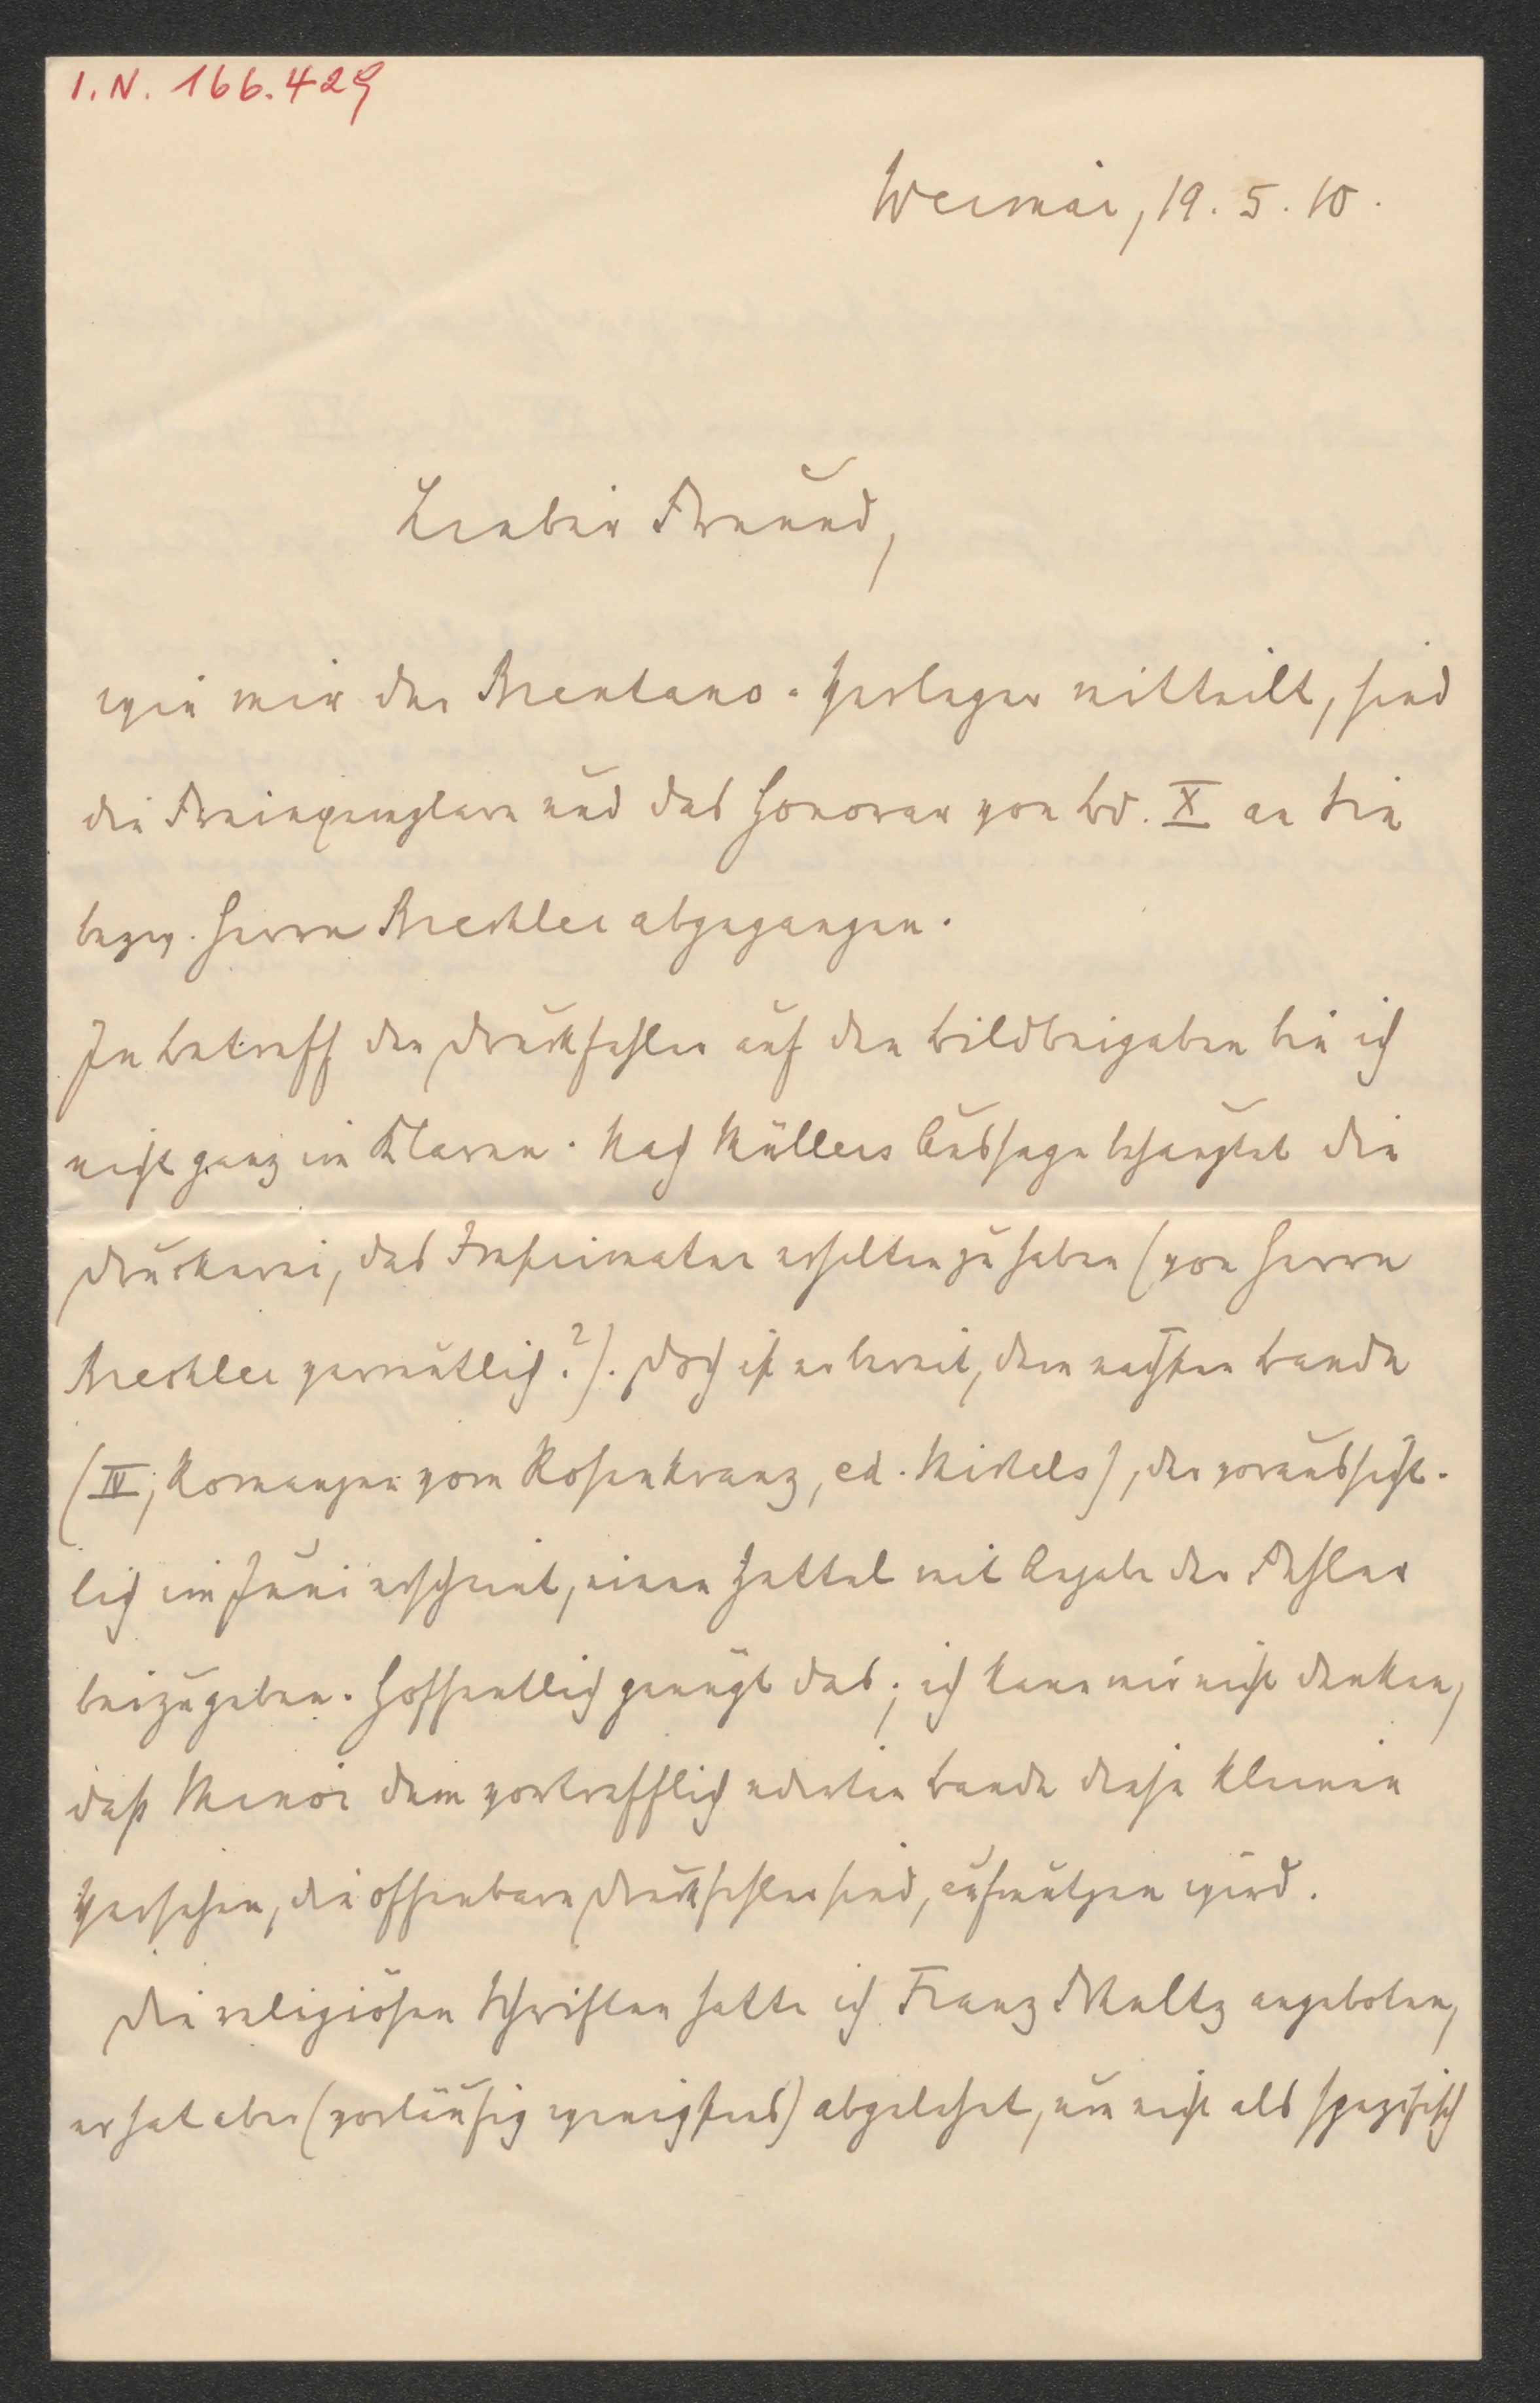 I.N. 166.429
Weimar, 19. 5. 10.
Lieber Freund,
wie mir der Brentano-Verleger mitteilt, sind
die Freiexemplare und das Honorar von Bd. X an Sie
bezw. Herrn Brechler abgegangen.
In Betreff der Druckfehler auf den Bildbeigaben bin ich
nicht ganz im Klaren. Nach Müllers Aussage behauptet die
Druckerei, das Imprimatur erhalten zu haben (von Herrn
Brechler vermutlich?). Doch ist er bereit, dem nächsten Bande
(IV, Romanzen vom Rosenkranz, ed. Michels), der voraussicht-
lich im Juni erscheint, einen Zettel mit Angabe der Fehler
beizugeben. Hoffentlich genügt das; ich kann mir nicht denken,
daß Minor dem vortrefflich edierten Bande diese kleinen
Versehen, die offenbare Druckfehler sind, aufmutzen wird.
Die religiösen Schriften hatte ich Franz Schultz angeboten,
er hat aber (vorläufig wenigstens) abgelehnt, um nicht als spezifisch